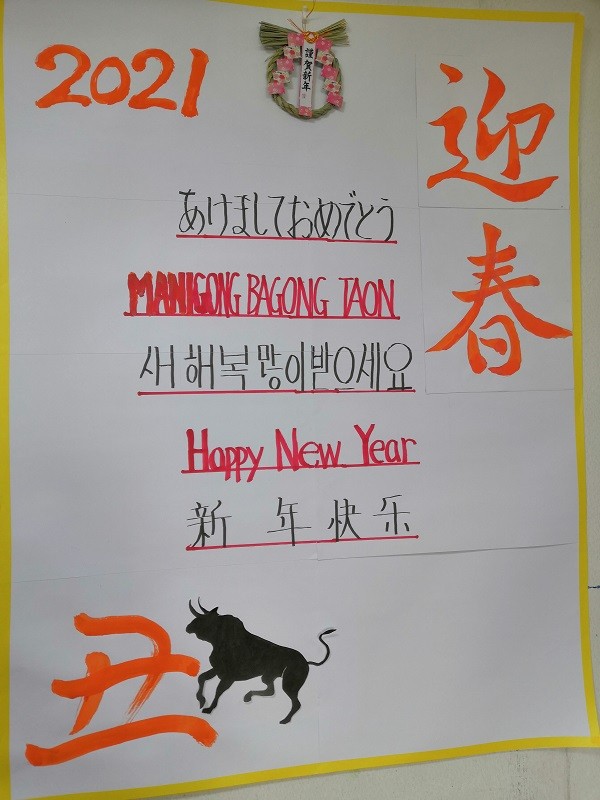 2021
謹賀新年
迎春
あけましておめでとう
MANIGONG BAGONG TAON
새해복많이받으세요
Happy New Year
新年快乐
丑